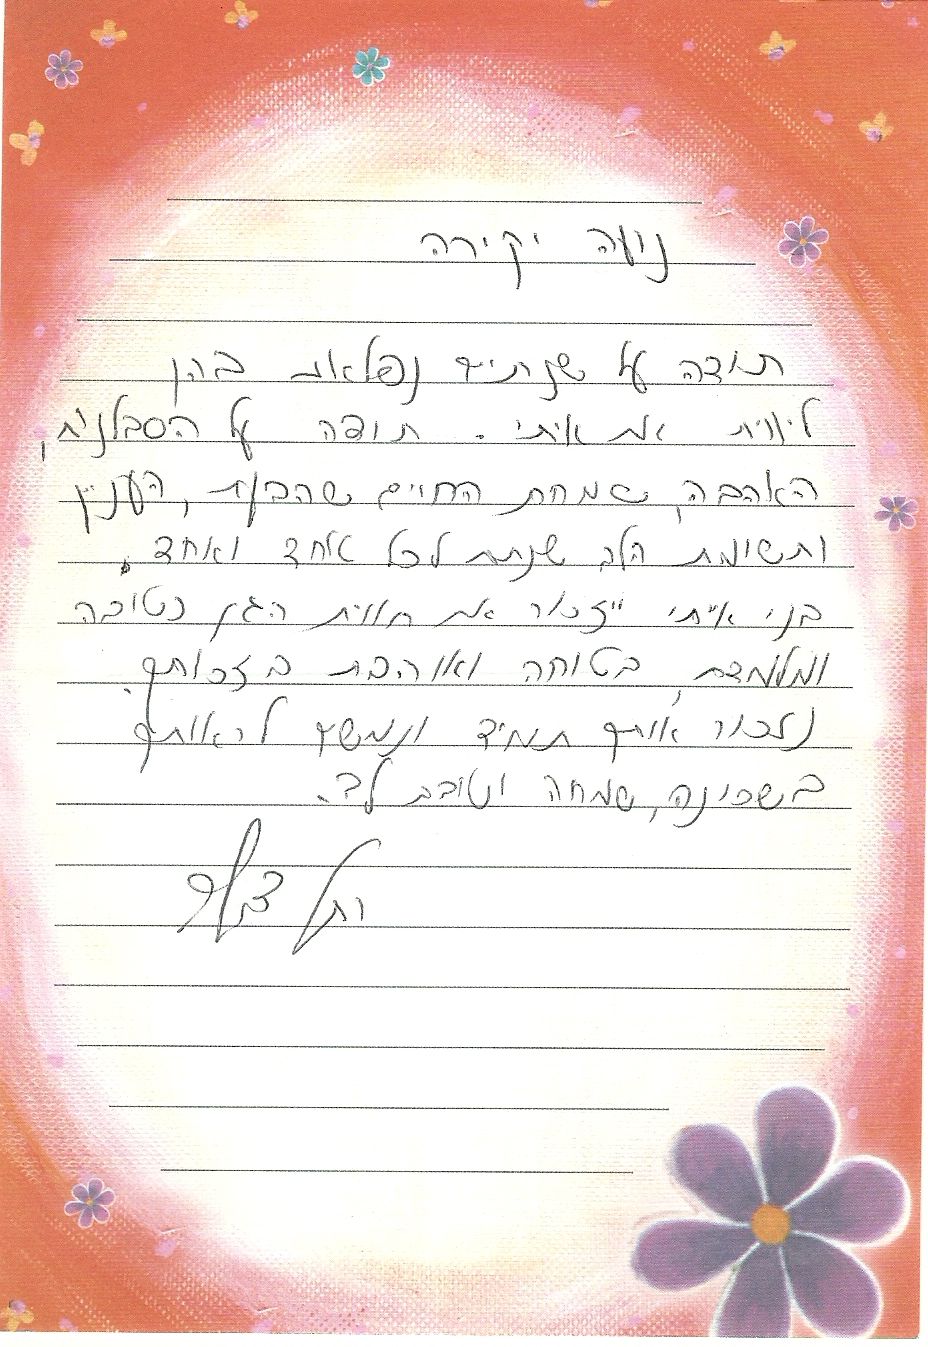 נועה יקירה
תודה על שנתיים נפלאות בהן
ליווית את איתי. תודה על הסבלנות,
האהבה, שמחת החיים שהבאת, הענין
ותשומת הלב שנתת לכל אחד ואחד.
בני איתי ייזכור את חווית הגן כטובה
ומלמדת, בטוחה ואוהבת בזכותך.
נזכור אותך תמיד ונמשיך לראותך
בשכונה, שמחה וטובת לב.